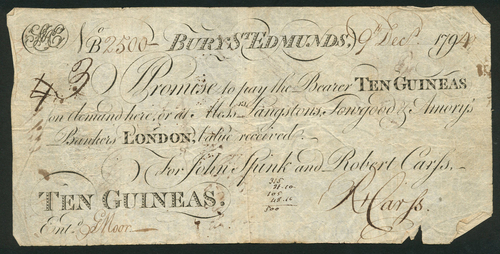 No. B2500 BURY St. EDMUNDS, 9th Decr. 1794
3 I Promise to pay the Bearer TEN GUINEAS
on demand here, or at Messrs. Langstons, Towgood & Amory's
Bankers LONDON, Value received.
For John Spink and Robert Carss.
315
100
TEN GUINEAS. RCarss.
Entd. Moor